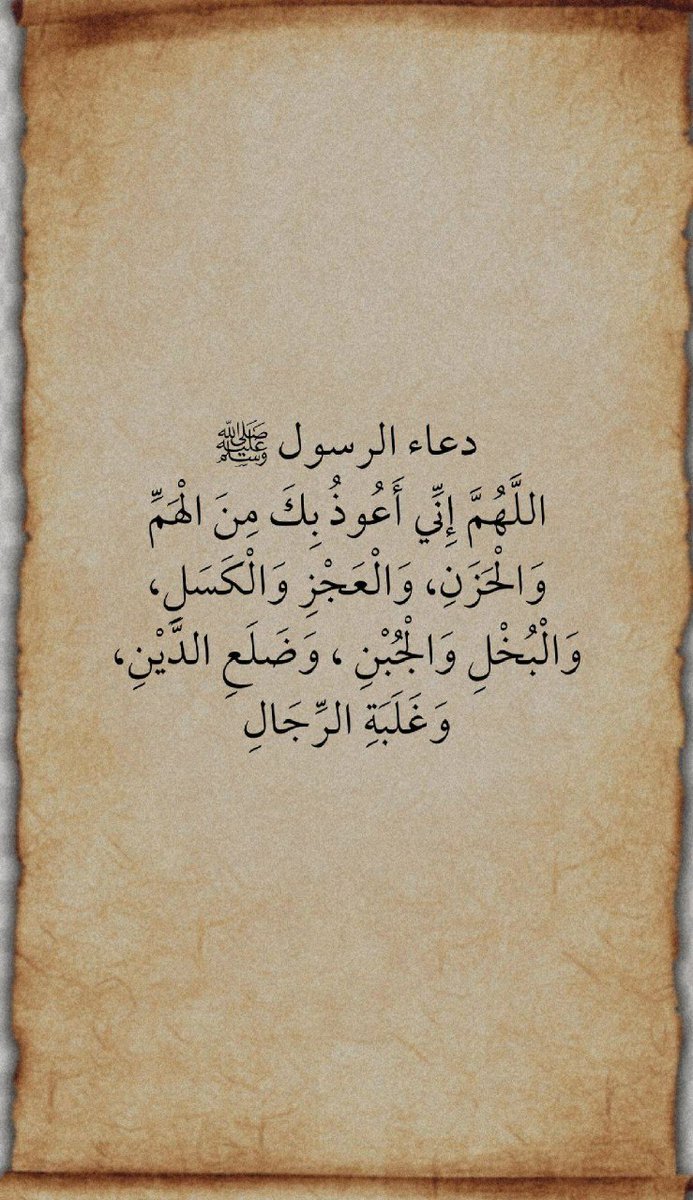 دعاء الرسول ﷺ
اللَّهُمَّ إِنِّي أَعُوذُ بِكَ مِنَ الْهَمِّ
وَالْحَزَنِ، وَالْعَجْزِ وَالْكَسَلِ،
وَالْبُخْلِ وَالْجُبْنِ ، وَضَلَعِ الدَّيْنِ،
وَغَلَبَةِ الرِّجَالِ